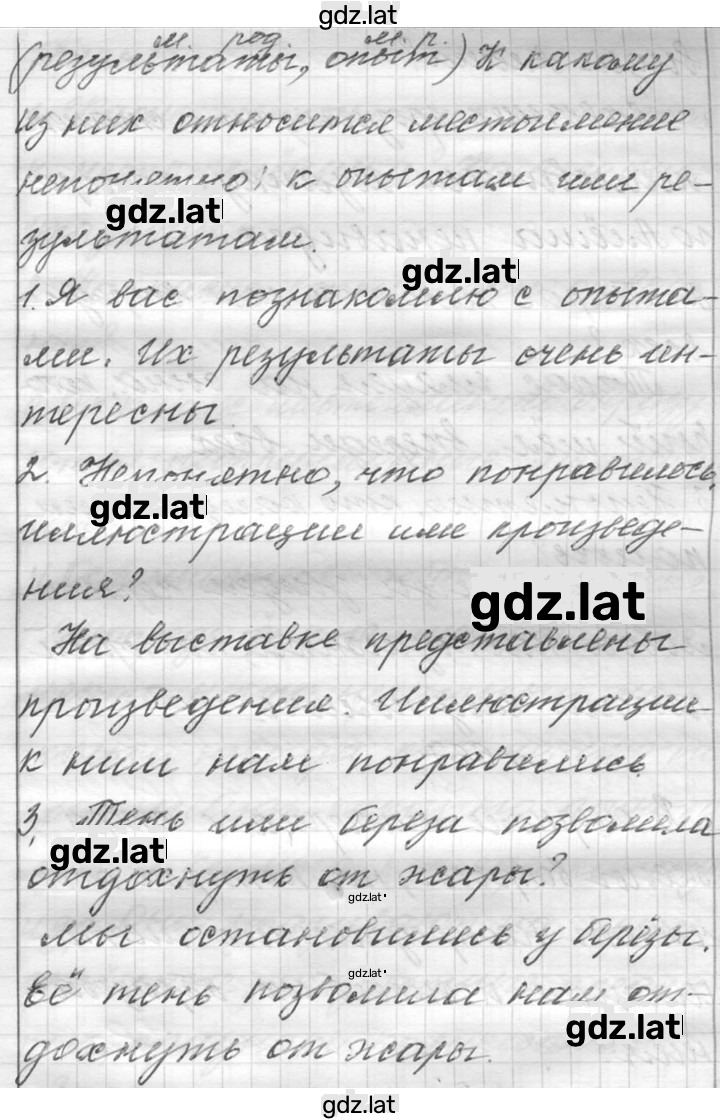 gdz.lat
м. род. м. р.
(результаты, опыт) К какому
из них относится местоимение
непонятно: к опытам или ре-
gdz.lat
зультатам.
gdz.lat
1. Я вас познакомлю с опыта-
ми. Их результаты очень ин-
тересны.
2. Непонятно, что понравилось,
gdz.lat
иллюстрации или произведе-
ния?
gdz.lat
На выставке представлены
произведения. Иллюстрации
к ним нам понравились.
3. Тень или берёза позволила
gdz.lat
отдохнуть от жары?
gdz.lat
мы остановились у берёзы.
gdz.lat
Её тень позволила нам от-
gdz.lat
дохнуть от жары.
gdz.lat